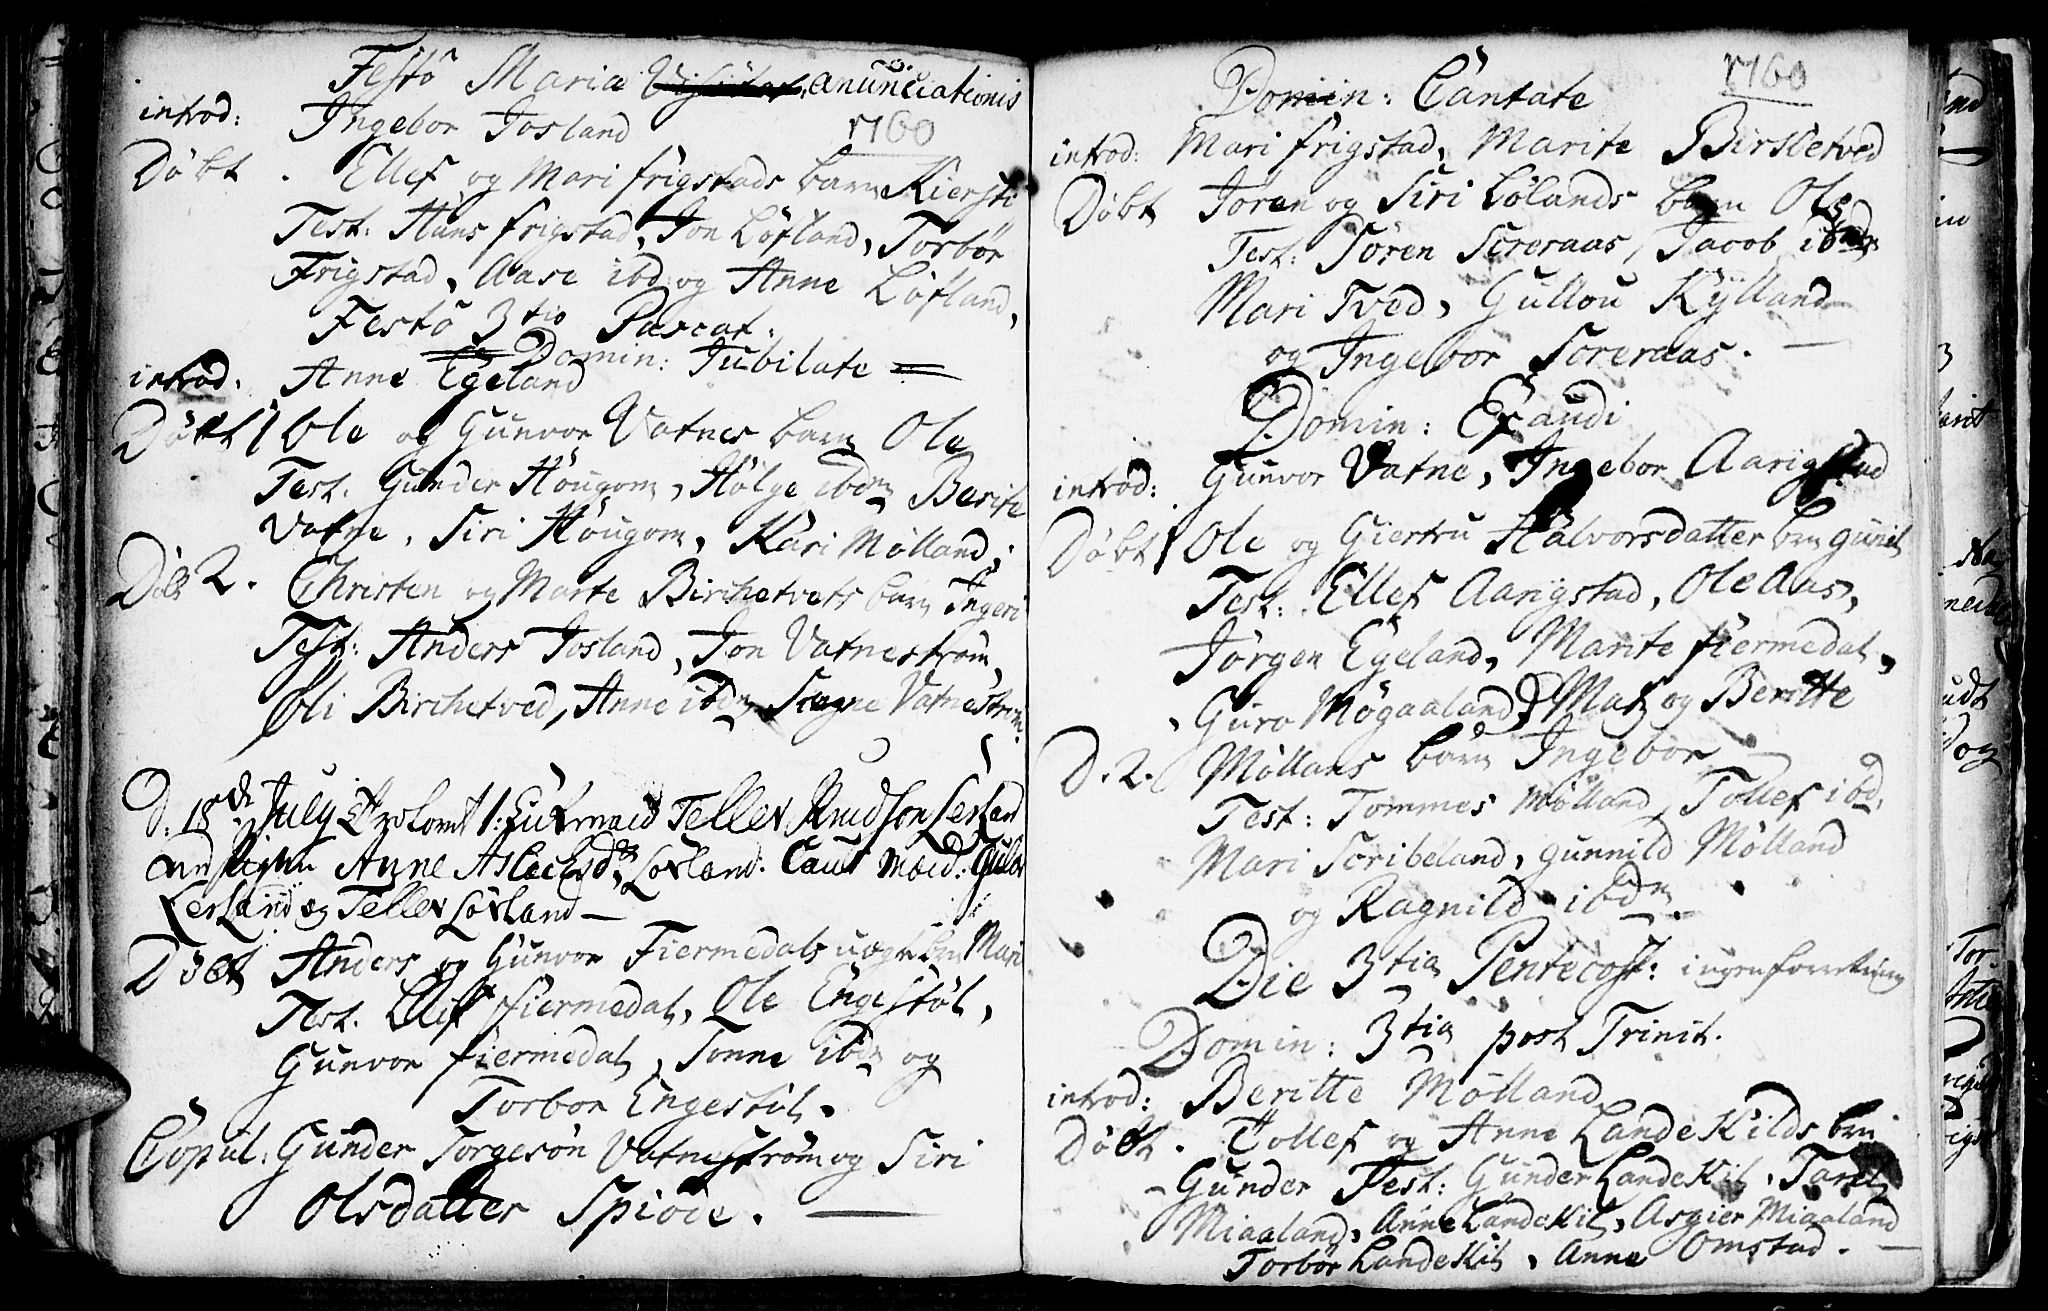 Festo Maria Visitat, anunciationis
1760
introd: Ingebor Josland
Døbt. Ellef og Mari frigstads barn Kiersti
Test: Hans frigstad, Jon Løfland, Torbør
Frigstad, Aase ibd og Anne Løfland,
Festo 3tio Pascat:
Domin: Jubilate
introd: Anne Egeland
Døbt 1 Ole og Gunvor Vatnes barn Ole
Test. Gunder Hougom, Hølge ibdm Berite
Vatne, Siri Hougom, Kari Mølland;
Døb 2. Christen og Marte Birchetvets barn Ingeri
Test: Anders Josland, Jon Vatnestrøm,
Oli Birchetved, Anne ibdm Signe Vatnestrøm.
D. 18de July Trolovet 1: Tellev Knudson Lerland
Anne Aslachsdtr Løvland. Caut
Lerland og Tellev Løvland
Døbt Anders og Gunvor Fiermedals uægte brn Mari
Test. Ellef fiermedal, Ole Engestøl,
Gunvor fiermedal, Tonne ibdm og
Torbor Engestøl.
Copul: Gunder Torgesøn Vatnestrøm og Siri
Olsdatter Spiode.
1760
Domin: Cantate
introd: Mari frigstad, Marite Birketved
Døbt Joren og Siri Lølands barn Ole
Test: Søren Soreraas, Jacob ibdm
Mari Tved, Gullou Kylland
og Ingebor Soreraas.
Domin: Exaudi
introd: Gunvor Vatne, Ingebor Aarigstad
Døbt 1 Ole og Giertru Halvorsdatter brn Guril
Test: Ellef Aarigstad, Ole Aas,
Jørgen Egeland, Marite fiermedal,
Guro Møgaaland Matz og Beritte
D. 2. Møllans barn Ingebor
Test: Tommes Mølland, Tollef ibd.
Mari Scribeland, gunnild Mølland
og Ragnild ibdm
Die 3tia Pentecost: ingen forretning
Domin: 3tia post Trinit.
introd: Beritte Mølland
Døbt. Tollef og Anne Landekilds brn
Gunder Test: Gunder Landekil, Tarel
Miaaland, Anne Landekil, Asgier Miaaland
Torbor Landekil, Anne Omstad.